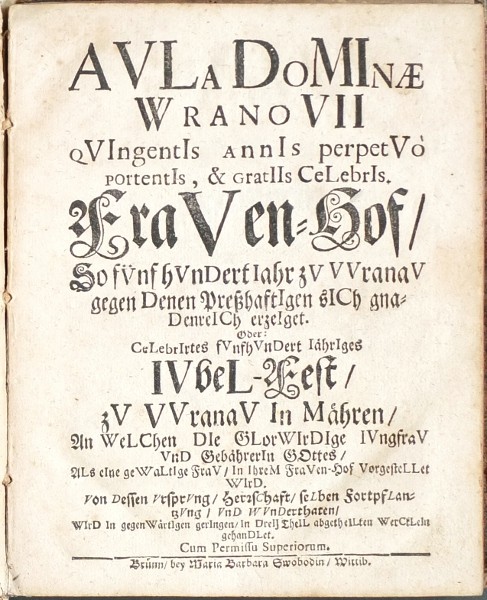 AVLa DoMInæ
WRANOVII
QVIngentIs annIs perpetVò
portentIs, & gratIIs CeLebrIs.
FraVen-Hof/
So fVnf hVnDert Iahr zV VVranaV
gegen Denen PreßhaftIgen sICh gna-
DenreICh erzeIget.
Oder:
CeLebrIrtes fVnfhVnDert IährIges
IVbeL-Fest/
zV VVranaV In Mähren/
An WeLChen DIe GLorWIrDIge IVngfraV
VnD GebährerIn GOttes/
ALs eIne geWaLtIge FraV/ In IhreM FraVen-Hof VorgesteLLet
WIrD.
Von Dessen VrsprVng/ HerrsChaft/ seLben FortpfLan-
zVng/ VnD WVnDerthaten/
WIrD In gegenWärtIgen gerIngen/ In DreIJ TheIL abgetheILten WerCkLeIn
gehanDLet.
Cum Permissu Superiorum.
Brünn/ bey Maria Barbara Swobodin/ Wittib.